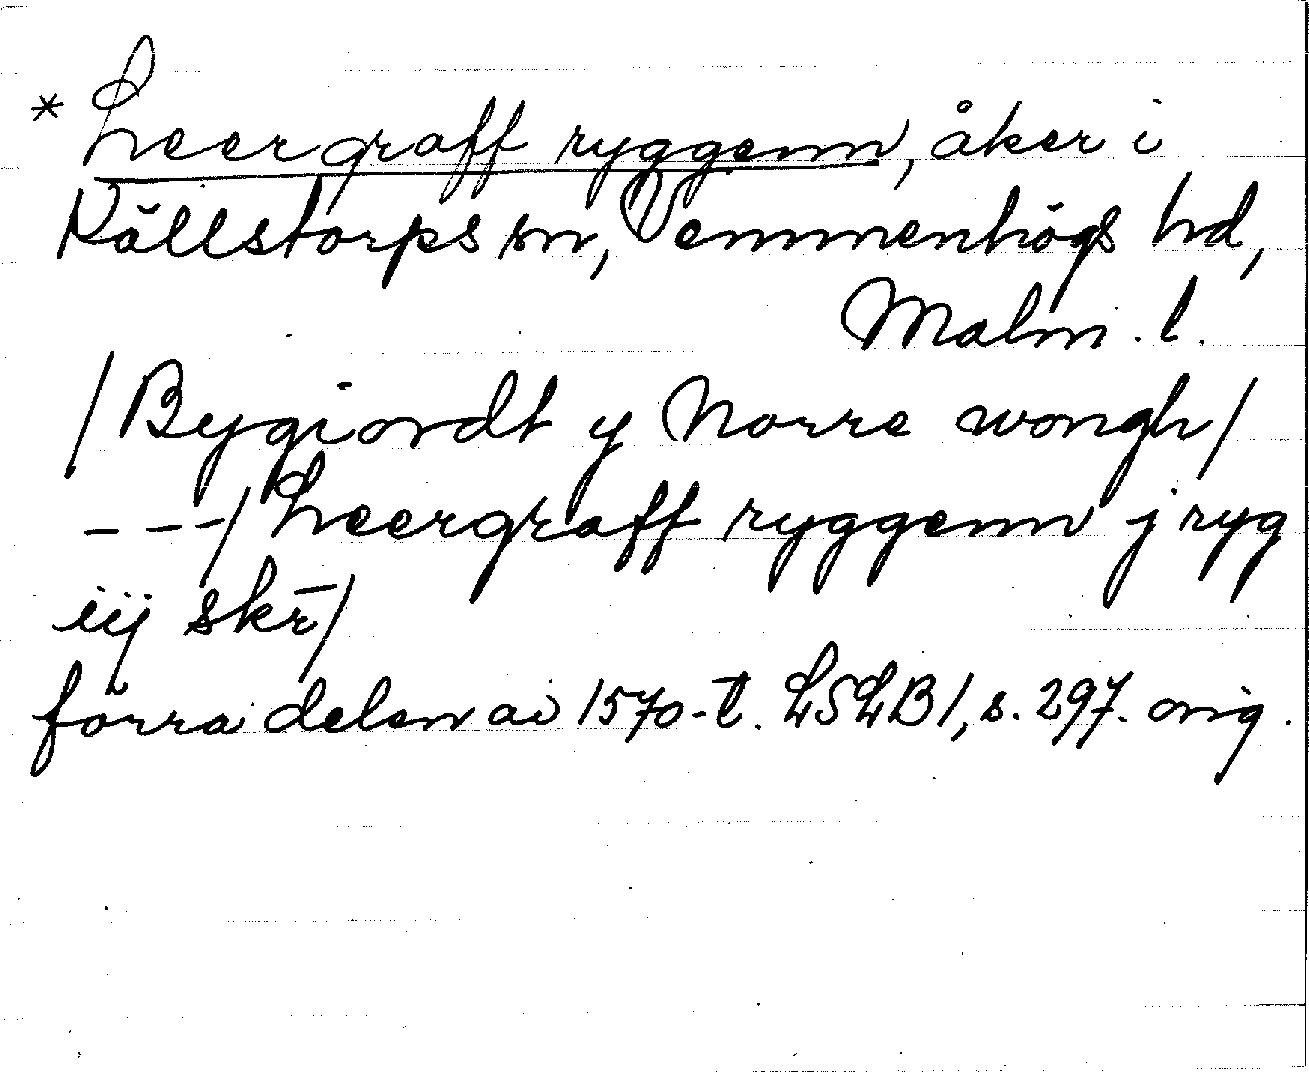 * Leergraff ryggenn, åker i
Källstorps sn, Vemmenhögs hd,
Malm. l.
/Bygiordt y Norre wongh/
---/Leergraff ryggenn j ryg
iij skr̄/
förra delen av 1570-t. LSLB1, s. 297. orig.